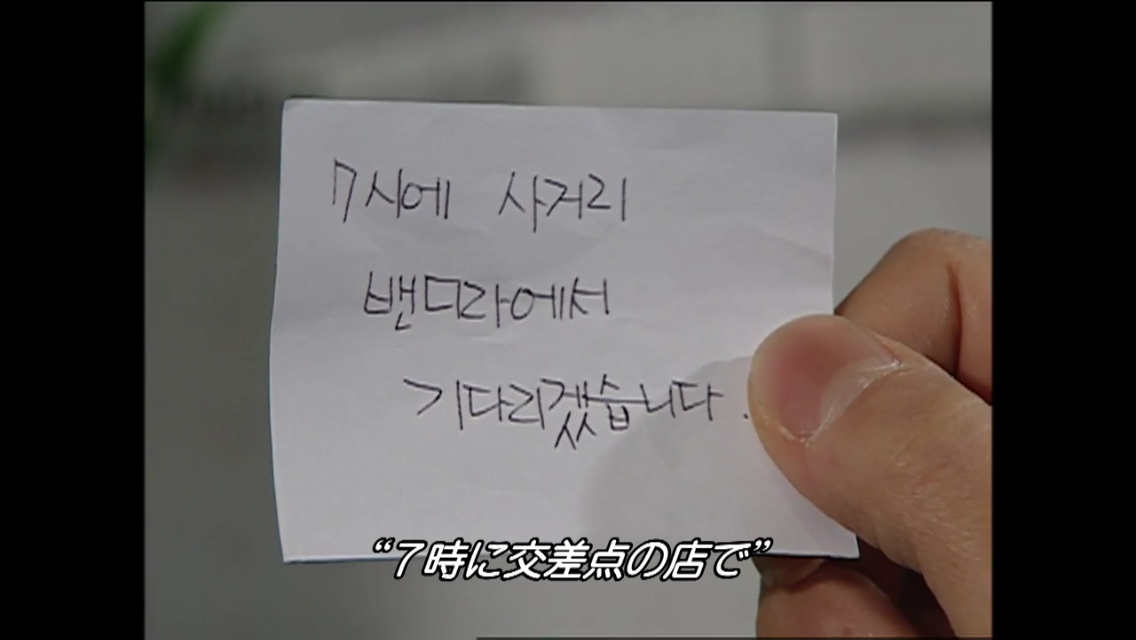 7시에 사거리
밴디라에서
기다리겠습니다.
“7時に交差点の店で”